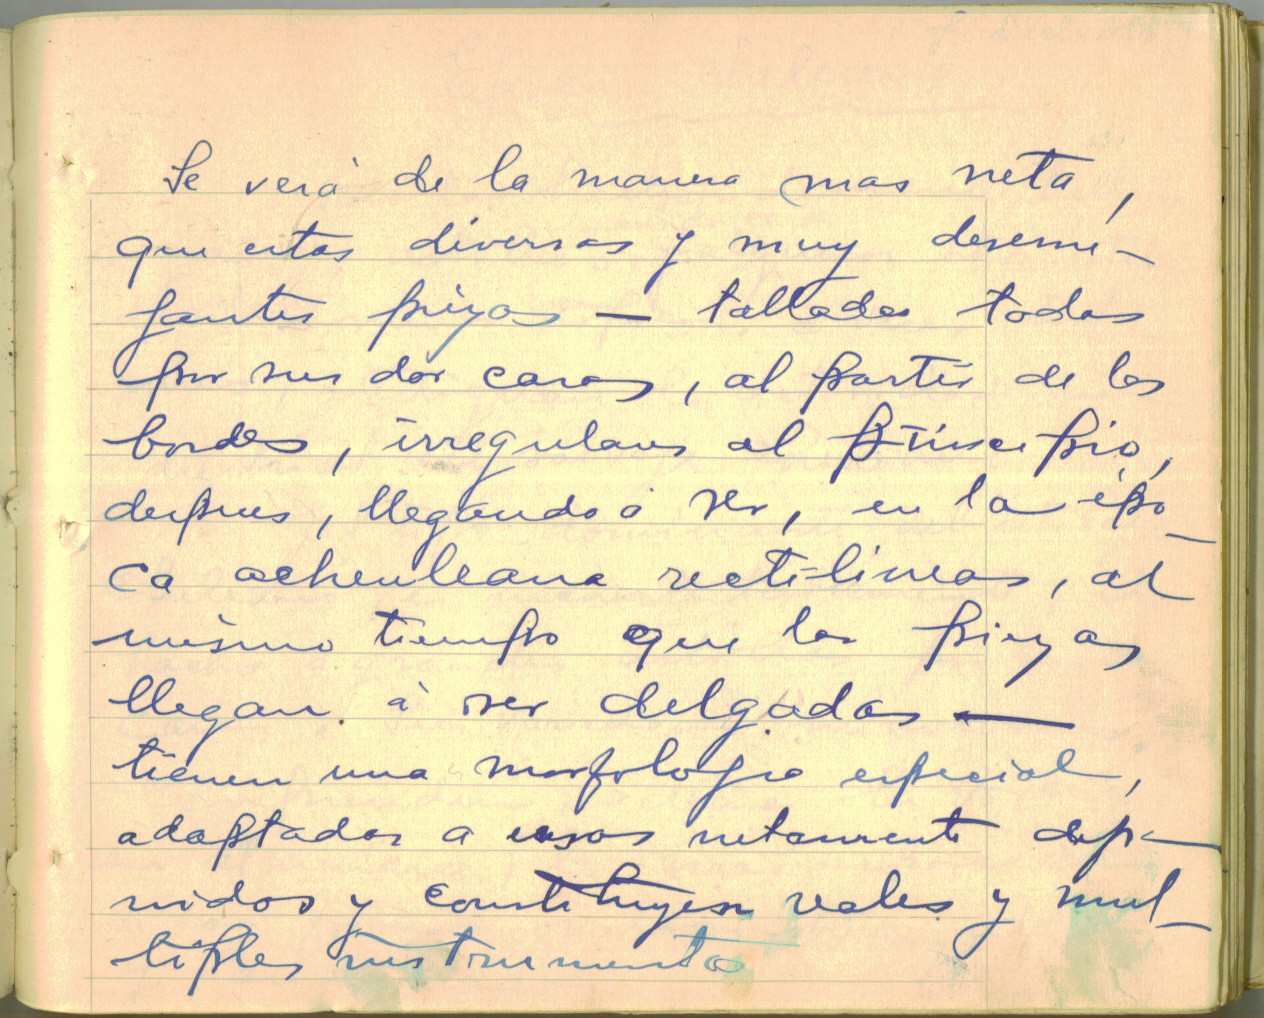 Se verá de la manera mas neta,
que estas diversas y muy deseme-
jantes piezas — talladas todas
por sus dos caras, al partir de los
bordes, irregulares al principio,
despues, llegando á ser, en la épo-
ca acheuleana rectilineas, al
mismo tiempo que las piezas
llegan á ser delgadas —
tienen una morfologia especial,
adaptadas a usos netamente defi-
nidos y constituyen reales y mul-
tiples instrumentos